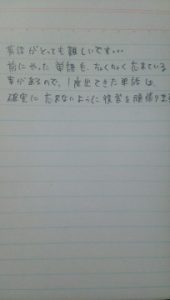 英語がとっても難しいです...
前にやった単語も、ちょくちょく忘れている
事があるので、1度出てきた単語は、
確実に忘れないように復習を頑張りま